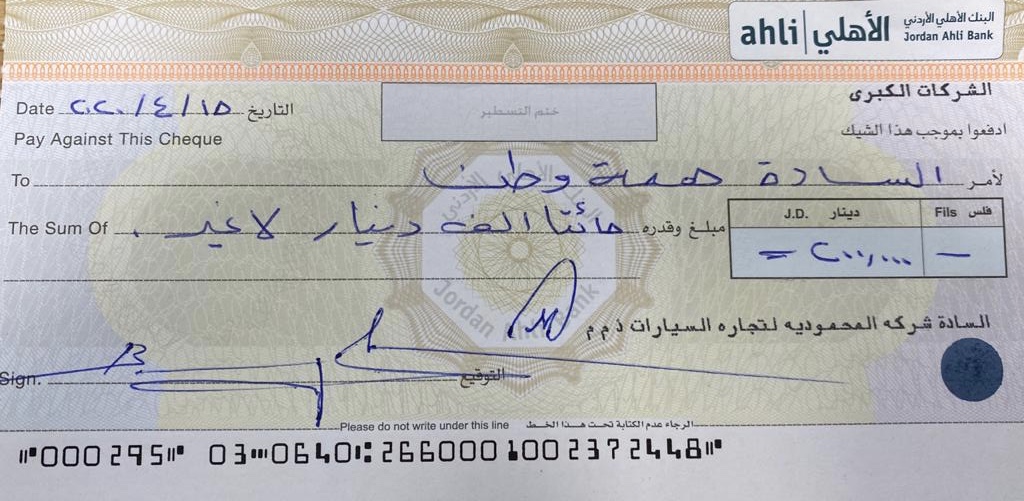 البنك الأهلي الأردني
ahli الأهلي Jordan Ahli Bank
الشركات الكبرى
Date ٢٠٢٠/٤/١٥ التاريخ
ختم التسطير
Pay Against This Cheque ادفعوا بموجب هذا الشيك
To السادة همة وطن لأمر
The Sum Of مبلغ وقدره مائتا الف دينار لا غير
J.D. دينار Fils فلس
٢٠٠,٠٠٠ = —
Jordan Ahli Bank
السادة شركه المحموديه لتجاره السيارات ذ م م
Sign. التوقيع
Please do not write under this line الرجاء عدم الكتابة تحت هذا الخط
⑈000295⑈ 03⑉0640⑆ 2660001002372448⑈